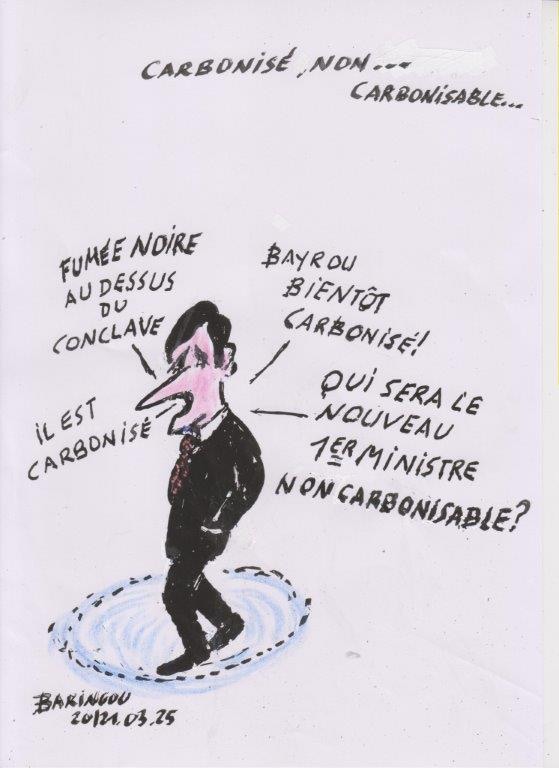 CARBONISÉ, NON...
CARBONISABLE...
FUMÉE NOIRE
AU DESSUS
DU
CONCLAVE
BAYROU
BIENTÔT
CARBONISÉ!
IL EST
CARBONISÉ
QUI SERA LE
NOUVEAU
1ER MINISTRE
NON CARBONISABLE?
BARINGOU
20/21.03.25